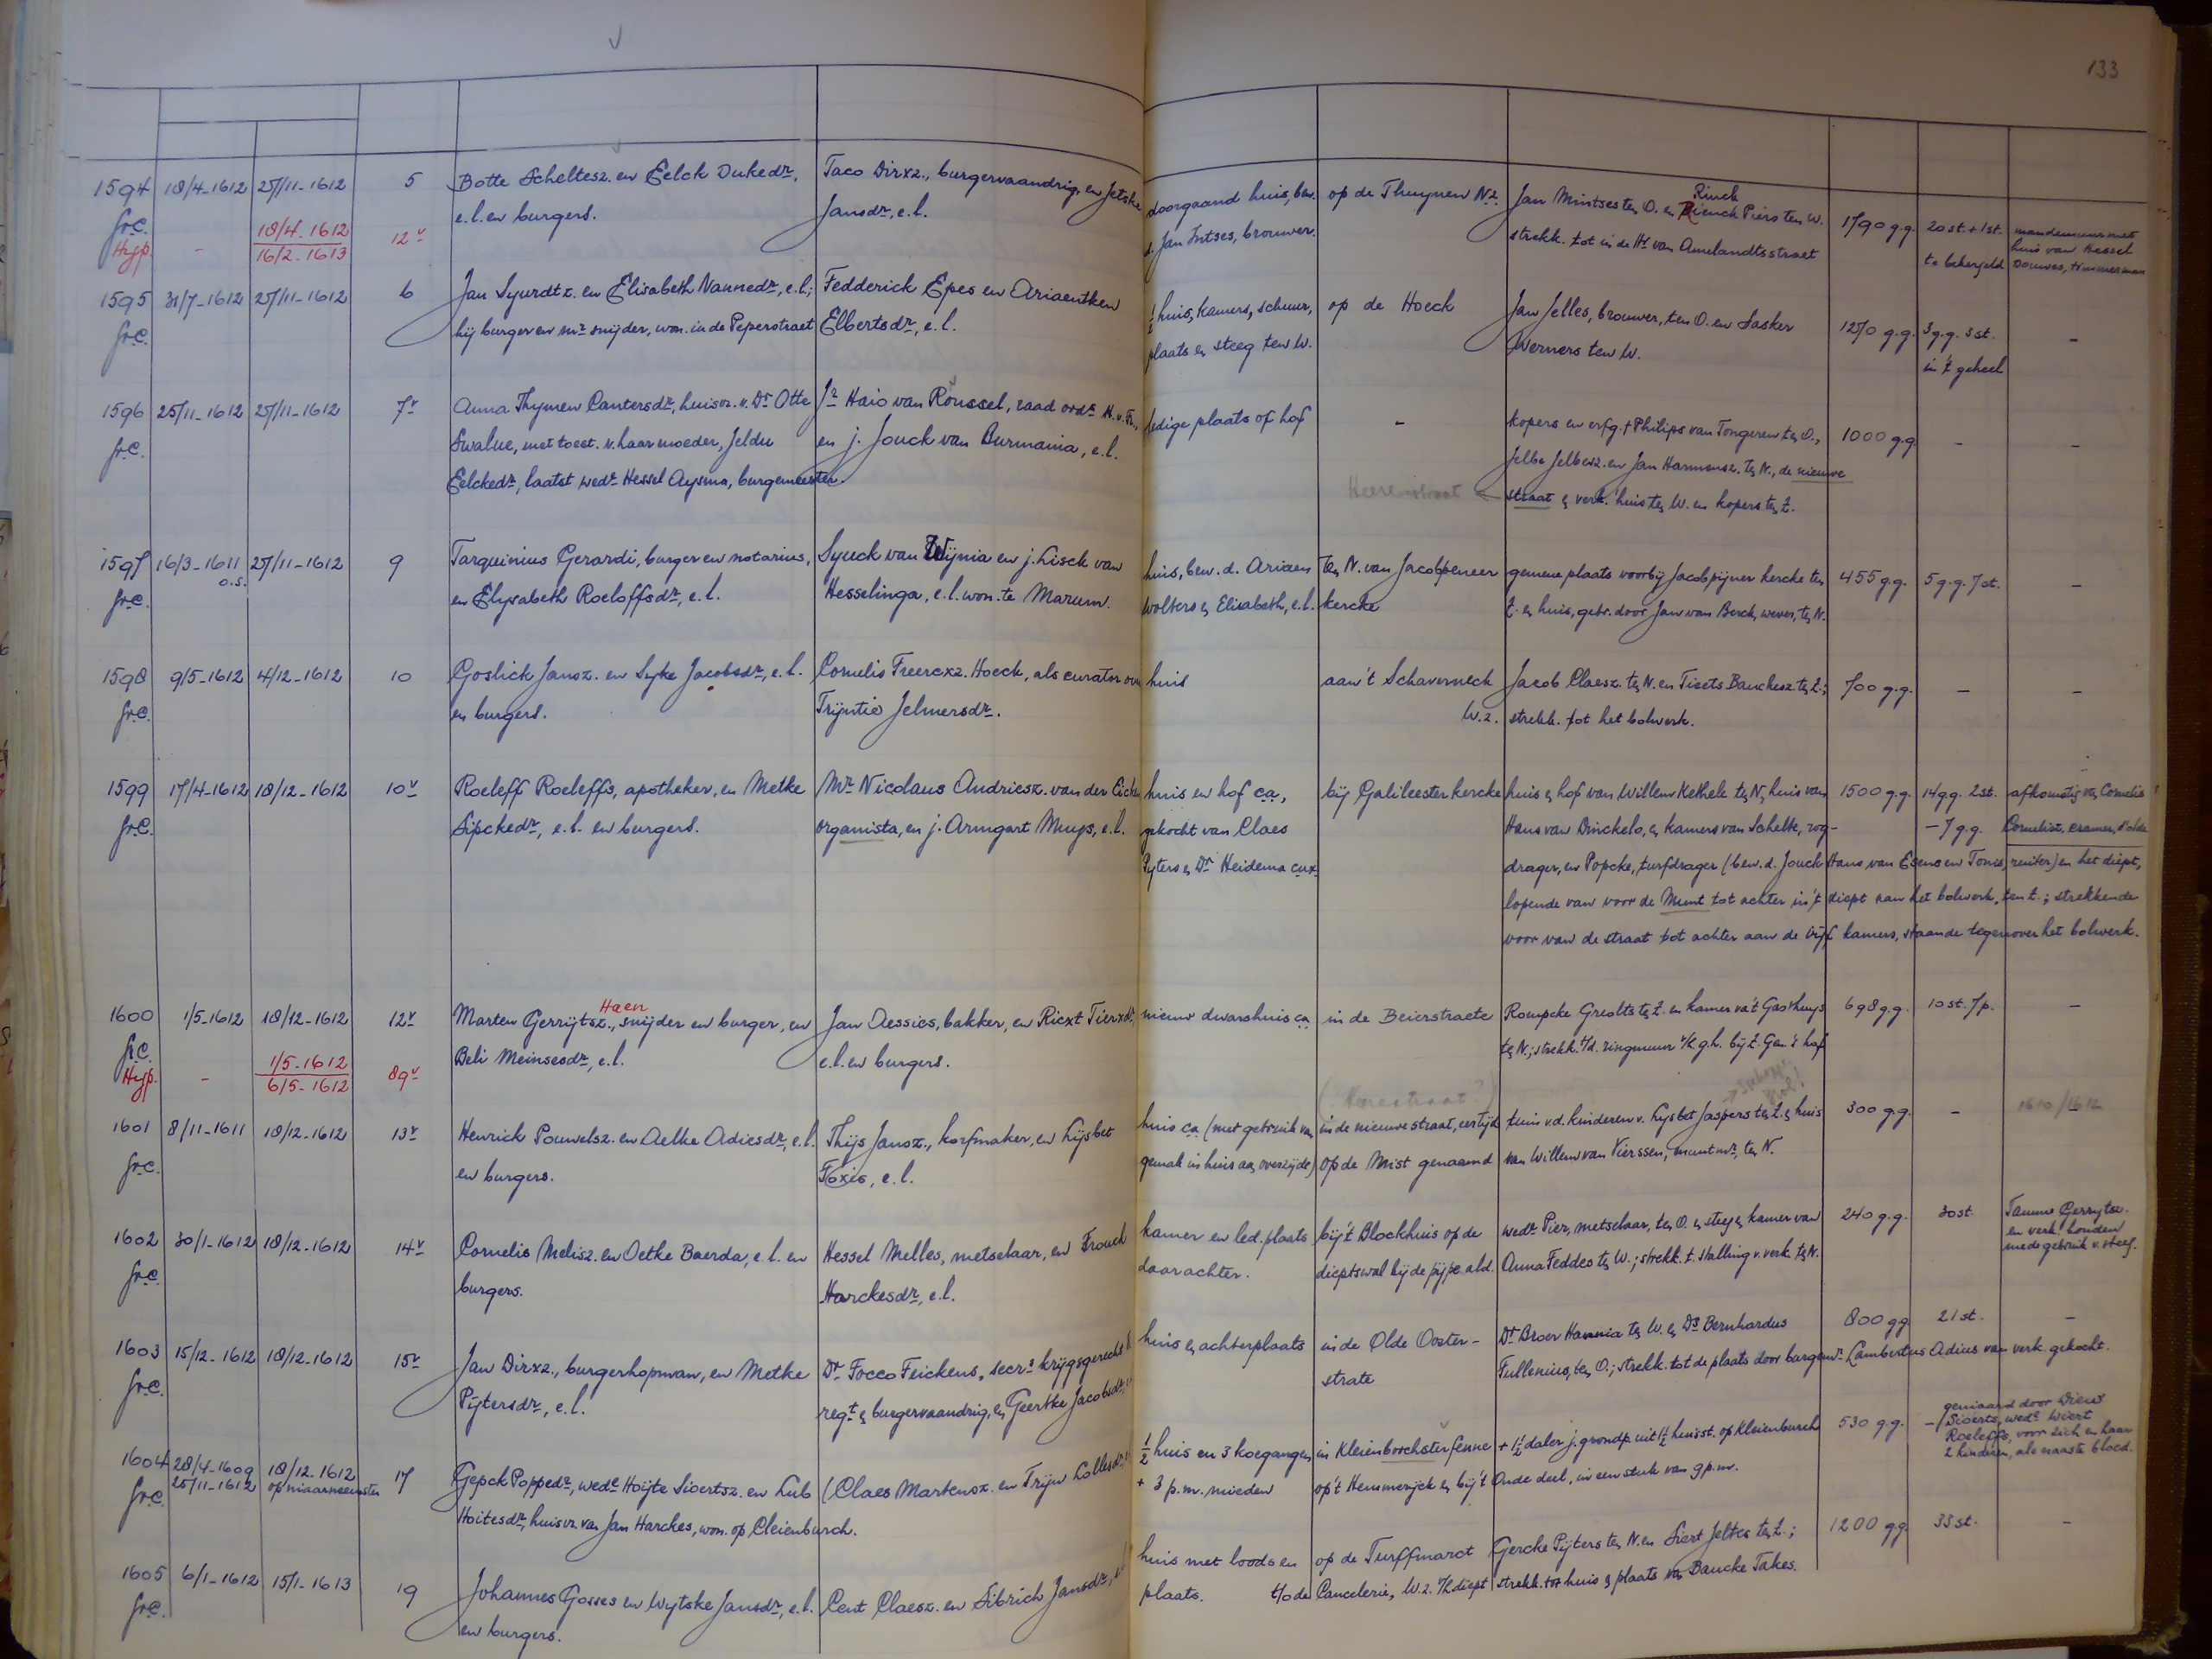 133
1594 18/4-1612 27/11-1612 5 Botte Scheltesz. en Eelck Dukedr, Taco Dirxz., burgervaandrig, en Jetske doorgaand huis, bew. op de Thuynen N.z. Jan Mintses ten O. en Rienck Piers ten W. 1790 g.g. 20 st. + 1 st.
Rinck
Gr.C. e.l. en burgers. Jansdr, e.l. d. Jan Intses, brouwer. strekk. tot in de Hr van Amelandtsstraet te bekergeld mandemuur met huis van Hessel Douwes, timmerman
Hyp. - 18/4-1612 12v
16/2-1613
1595 31/7-1612 27/11-1612 6 Jan Syurdtz. en Elisabeth Nannedr, e.l.; Fedderick Epes en Ariaentken ½ huis, kamers, schuur, op de Hoeck Jan Jelles, brouwer, ten O. en Sasker 1250 g.g. 3 g.g. 3 st. -
Gr.C. hij burger en mr snijder, won. in de Peperstraet Elbertsdr, e.l. plaats en steeg ten W. Werners ten W. in 't geheel
1596 25/11-1612 27/11-1612 7v Anna Thymen Cantersdr, huisvr. v. Dr Otte Jr Haio van Roussel, raad ordrs H.v.Fr., ledige plaats of hof - kopers en erfg. + Philips van Tongeren ten O., 1000 g.g. - -
Gr.C. Swalue, met toest. v. haar moeder, Jeldu en j. Jouck van Burmania, e.l. Jelbe Jelbesz. en Jan Harmensz. ten N., de nieuwe
Eelckedr, laatst wedr Hessel Aysma, burgemeester. Heerenstraat straat en verk. huis ten W. en kopers ten Z.
1597 16/3-1611 27/11-1612 9 Tarquinius Gerardi, burger en notarius, Syuck van Wynia en j. Lisck van huis, bew. d. Ariaen ten N. van Jacobpeneer gemene plaats voorbij Jacobpijner kercke ten 455 g.g. 5 g.g. 7 st. -
o.s.
Gr.C. en Elysabeth Roeloffsdr, e.l. Hesselinga, e.l. won. te Marum. Wolters en Elisabeth, e.l. kercke Z. en huis, gebr. door Jan van Berck, wever, ten N.
1598 9/5-1612 4/12-1612 10 Goslick Jansz. en Syke Jacobsdr, e.l. Cornelis Freercxz. Hoeck, als curator over huis aan 't Schaverneck Jacob Claesz. ten N. en Tiets Bauckesz. ten Z.; 700 g.g. - -
Gr.C. en burgers. Tryntie Jelmersdr. W.z. strekk. tot het bolwerk.
1599 17/4-1612 18/12-1612 10v Roeleff Roeleffs, apotheker, en Metke Mr Nicolaus Andriesz. van der Eicken huis en hof c.a., bij Galileester kercke huis en hof van Willem Kethele ten N, huis van 1500 g.g. 14 g.g. 2 st. afkomstig van Cornelis
Gr.C. Sipckedr, e.l. en burgers. organista, en j. Armgart Muys, e.l. gekocht van Claes Hans van Dinckelo, en kamers van Schelte, rog- - 7 g.g. Cornelisz, cramer, d'olde
Pyters en Dr Heidema cux. drager, en Popcke, turfdrager (bew. d. Jouck Hans van Esens en Tonis, ruiter) en het diept,
lopende van voor de Munt tot achter in 't diept aan het bolwerk, ten Z.; strekkende
voor van de straat tot achter aan de vijf kamers, staande tegenover het bolwerk.
Haen
1600 1/5-1612 18/12-1612 12v Marten Gerrytsz., snijder en burger, en Jan Aessies, bakker, en Riext Tierxdr, nieuw dwarshuis ca in de Beierstraete Rompcke Greolts ten Z. en kamer va 't Gasthuys 698 g.g. 10 st. 7 p. -
Gr.C. Beli Meinsesdr, e.l. e.l. en burgers. ten N.; strekk. t/d. ringmuur v/h g.h. bij Z. Gen.'s hof
Hyp. - 1/5-1612 89v
6/5-1612
1601 8/11-1611 18/12-1612 13v Henrick Pouwelsz. en Aelke Adiesdr, e.l. Thijs Jansz., korfmaker, en Lijsbet huis ca (met gebruik van in de nieuwe straat, eertijds tuin v.d. kinderen v. Lysbet Jaspers ten Z. en huis 300 g.g. - 1610/1612
Gr.C. en burgers. Foxis, e.l. gemak in huis aan overzijde) op de Mist genaamd van Willem van Vierssen, muntmr, ten N.
1602 30/1-1612 18/12-1612 14v Cornelis Melisz. en Oetke Baerda, e.l. en Hessel Melles, metselaar, en Frouck kamer en led. plaats bij 't Blockhuis op de wedr Pier, metselaar, ten O. en steeg en kamer van 240 g.g. 30 st. Tamme Gerrytsz. en verk. houden mede gebruik v. steeg.
Gr.C. burgers. Harckesdr, e.l. daarachter. dieptswal bij de pijpe ald. Anna Feddes ten W.; strekk. t. stalling v. verk. ten N.
1603 15/12-1612 18/12-1612 15v Jan Dirxz., burgerhopman, en Metke Dr Focco Feickens, secrs krijgsgerechts huis en achterplaats in de Olde Ooster- Dr Broer Hannia ten W. en Ds Bernhardus 800 gg 21 st. -
Gr.C. Pijtersdr, e.l. regt en burgervaandrig, en Geertke Jacobsdr, strate Fullenius, ten O.; strekk. tot de plaats door burgemr Lambertus Adius van verk. gekocht.
1604 28/4-1609 18/12-1612 17 Gepck Poppedr, wedr Hoijte Sioertsz. en Lub (Claes Martensz. en Trijn Lollesdr, ½ huis en 3 koegangen in Kleienborchsterfenne + 1½ daler j. grondp. uit 1½ huisst. op Kleienburch 530 g.g. - geniaard door Dieuw Sioerts, wedr Wiert Roeleffs, voor zich en haar 2 kinderen, als naaste bloed.
Gr.C. 25/11-1612 op niaarneemster Hoitesdr, huisvr. van Jan Harckes, won. op Cleienburch. + 3 p.m. mieden op 't Hemmerijck en bij 't Oude deel, in een stuk van 9 p.m.
1605 6/1-1612 15/1-1613 19 Johannes Gosses en Wytske Jansdr, e.l. Cent Claesz. en Sibrich Jansdr, huis met loods en op de Turffmarct Gercke Pijters ten N. en Siert Jeltes ten Z.; 1200 gg. 33 st. -
Gr.C. en burgers. plaats. t/o de Cancelerie, W.z. v/h diept strekk. tot huis en plaats van Baucke Takes.